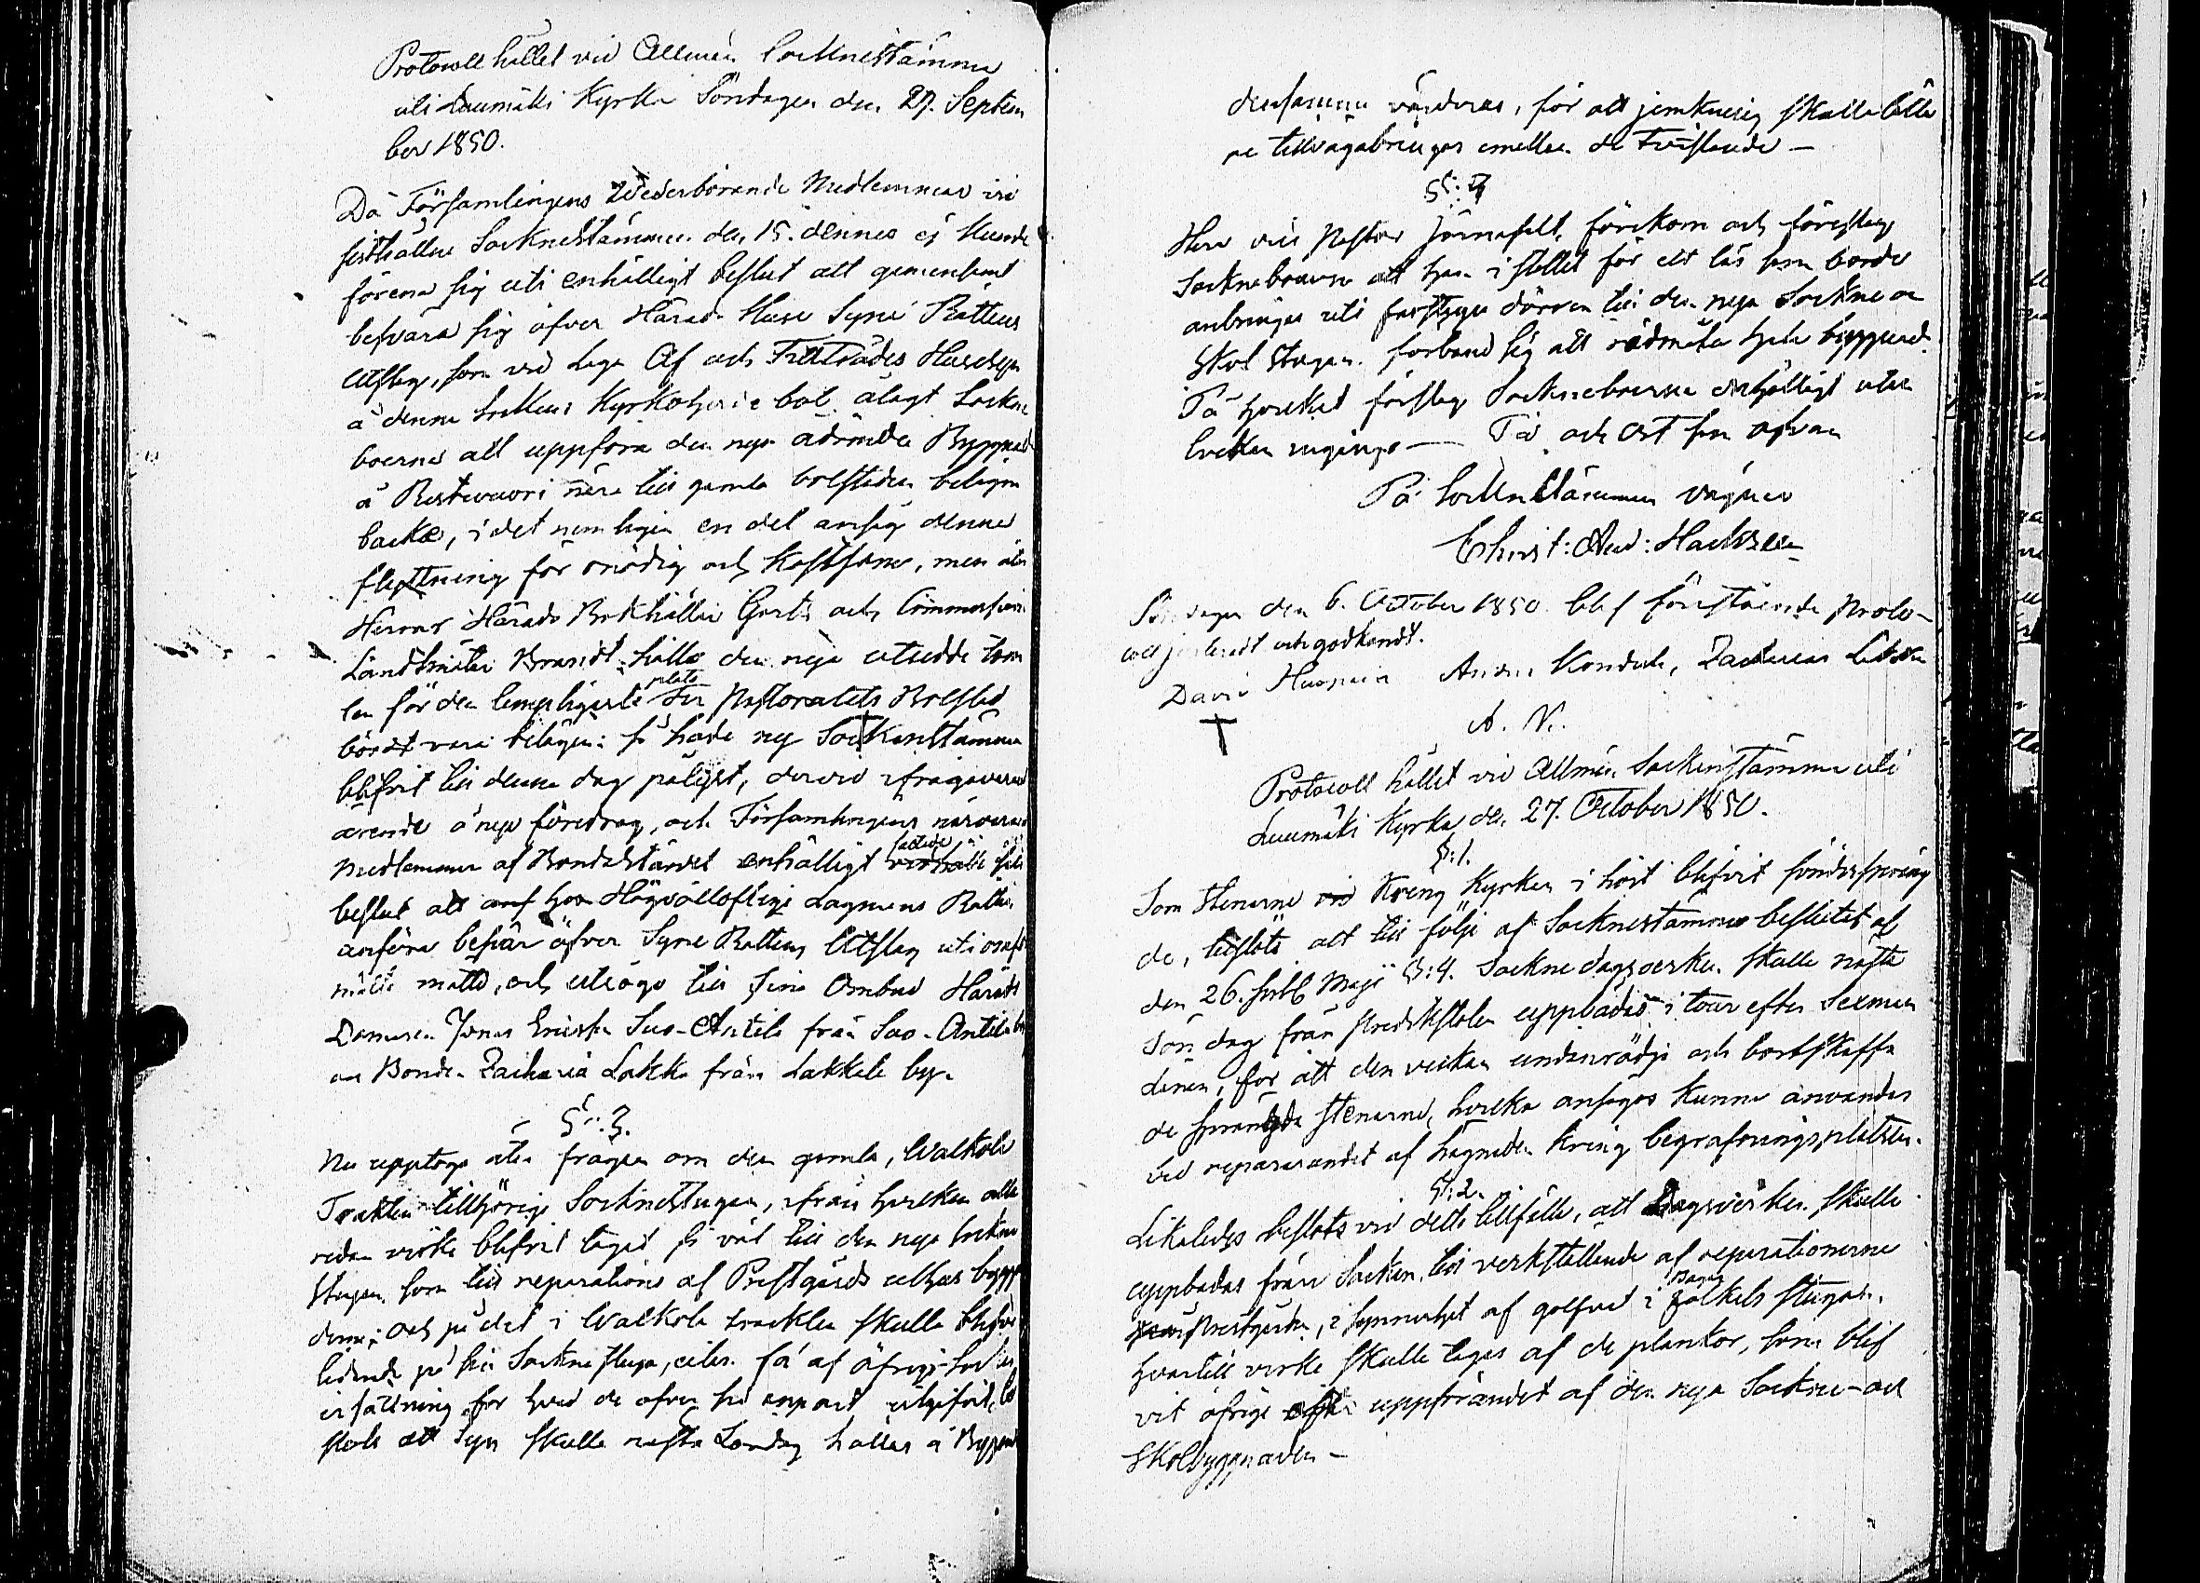 Protocoll hållet vid Allmän Socknestämma
uti Luumäki Kyrka Söndagen den 29. Septem
ber 1850.
Då Församlingens Wederbörande Medlemmar vid
sisthållne Socknestämma den 15. dennes ej kunde
förena sig uti enhälligt beslut att gemensamt
besvära sig öfver Härads Huse Syne Rättens
Utslag, som vid Laga Af och Tillträdes Husesyn
å denne Sockens Kyrkoherde bol ålagt Sockne
boerne att uppföra den nya Byggnad
å nära till gamla bolstaden belägen
backe, i det nemligen en del ansåg denne
flyttning för onödig och kostsam, men åter
Herrar Härads Bokhållar och Commissions
Landtmätar Brandt hållo den nya utsedde tom
ten för den lempligaste plats der Pastoratets Bolstad
bordt vara belägen: så hade ny Sockenstämma
blifvit till denna dag pålyst, dervid ifrågavarand
ärende å nyo föredrog, och Församlingens närvarand
Medlemmar af Bondeståndet enhälligt fattade
beslut att hos Högvälloflige Lagmans Rätten
anföra besvär öfver Syne Rättens Utslag uti
mätto, och utsågo till sine Ombud Härads
Domaren Jonas Ericsson Suo-Anttila från Suo-Anttila by
och Bonden Zacharias Lakka från Lakkala by.
§:2.
Nu upptogs åter frågan om den gamla, Walkola
Trakten tillhörige Socknestugan, ifrån hvilken alle
redan virke blifvit taget så väl till den nya Sockne
Stugan som till reparations af Prestgårds uthus bygg
derne; och på det i Walkola trakten skulle blifva
lidande på sin Socknestuga, utan få af öfrige Socknen
ersättning för hvad de öfver sin anpart utgifvit, be
slöts att Syn skulle nästa Lördag hållas å Byggnad
densamma värderas, för att jemkning skulle blifva
de tillvägabringas emellan de Tvistande —
§: 3
Herr vice Pastor Järnefelt, förekom och föreslog
Sockneboerne att han i stället för ett lås som borde
anbringas uti förstugu dörren till den nya Sockne och
Skol Stugan. förband sig att rödmåla hela byggnad.
På hvilket förslag Socknebоerne enhälligt utan
tvekan ingingo — Tid och Ort som ofvan
På Sockne Stämmans vägnar
Christ: And: Hackzell
Söndagen den 6. October 1850 blef förestående Proto-
coll justeradt och godkändt.
David Anders Zacharias
A. N.
Protocoll hållet vid Allmän Sockenstämma uti
Luumäki Kyrka den 27. October 1850.
§:1.
Som Stenarne Kring Kyrkan i höst blifvit sönderspräng
de, beslöts att till följe af Socknestämmo beslutet af
den 26. sistl Maji §:4. Sockne dagsverken skulle nästa
Söndag från Predikstolen uppbådas i tour efter Sexman
listan, för att den veckan undanrödja och bortskaffa
de sprängda stenarne, hvilka ansågos kunna användas
vid reparerandet af hägnaden kring begrafningsplatsen.
§:2.
Likaledes beslöts vid detta tillfälle, att Dagsverken skulle
uppbådas från Socken, till verkställande af reparationerne
Prestgården, i synnerhet af golfvet i folkets stugan,
hvartill virke skulle tagas af de plankor, som blif
vit öfrige uppförandet af den nya Sockne- och
Skolbyggnaden —